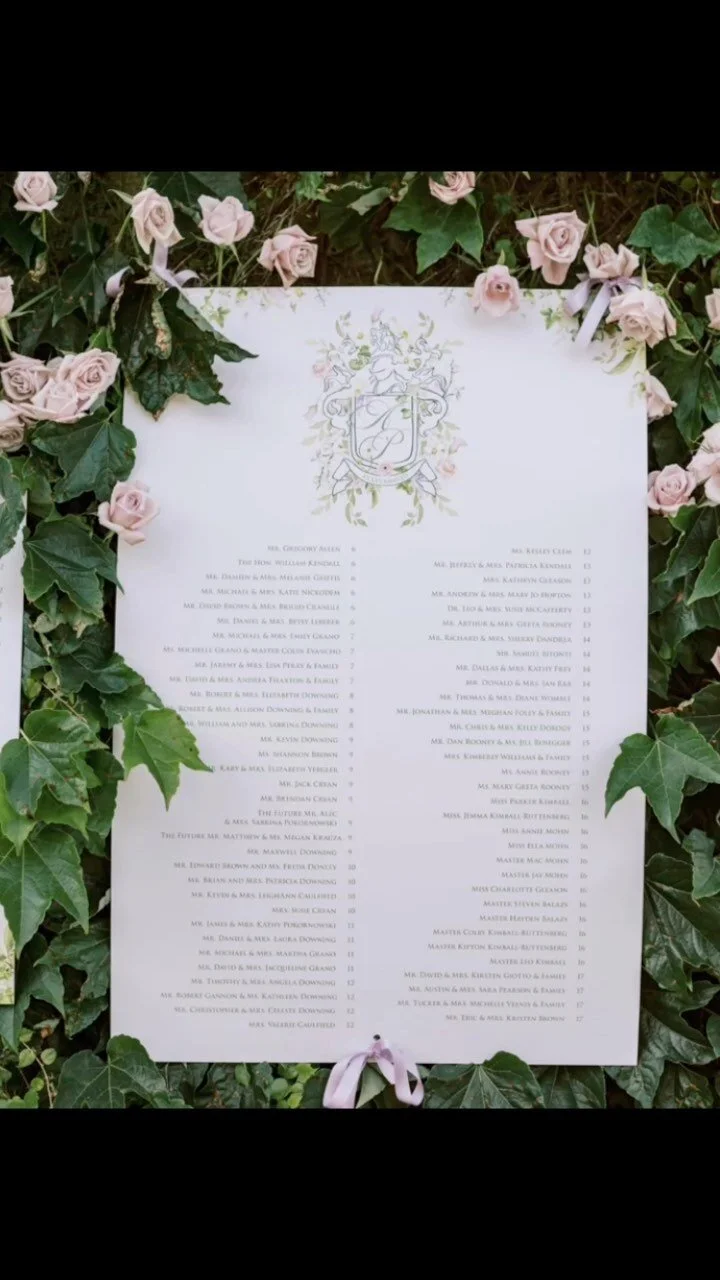 Mr. Gregory Allen 6
The Hon. William Kendall 6
Mr. Damien & Mrs. Melanie
Mr. Michael & Mrs. Katie Nickodem 6
Mr. David Brown & Mrs. Brigid Crangle 6
Mr. Daniel & Mrs. Betsy Leberer 6
Mr. Michael & Mrs. Emily Grano 7
Ms. Michelle Grano & Master Colin Evancho 7
Mr. Jeremy & Mrs. Lisa Peras & Family 7
Mr. David & Mrs. Andrea Thaxton & Family 7
Mr. Robert & Mrs. Elizabeth Downing 8
Robert & Mrs. Allison Downing & Family 8
William and Mrs. Sabrina Downing 8
Mr. Kevin Downing 9
Ms. Shannon Brown 9
Mr. Kary & Mrs. Elizabeth 9
Mr. Jack Cryan 9
Mr. Brendan Cryan 9
The Future Mr. Alec
& Mrs. Sabrina Pokornowski 9
The Future Mr. Matthew & Ms. Megan Krauza 9
Mr. Maxwell Downing 9
Mr. Edward Brown and Ms. 10
Mr. Brian and Mrs. Patricia Downing 10
Mr. Kevin & Mrs. Leighann Caulfield 10
Mrs. Susie Cryan 10
Mr. James & Mrs. Kathy Pokornowski 11
Mr. Daniel & Mrs. Laura Downing 11
Mr. Michael & Mrs. Martha Grano 11
Mr. David & Mrs. Jacqueline Grano 11
Mr. Timothy & Mrs. Angela Downing 12
Mr. Robert Gannon & Ms. Kathleen Downing 12
Mr. Christopher & Mrs. Celeste Downing 12
Mrs. Valerie Caulfield 12
Ms. Kelley Clem 12
Mr. Jeffrey & Mrs. Patricia Kendall 13
Mrs. Kathryn Gleason 13
Mr. Andrew & Mrs. Mary Jo Horton 13
Dr. Leo & Mrs. Susie McCafferty 13
Mr. Arthur & Mrs. Geeta Rooney 13
Mr. Richard & Mrs. Sherry Dandrea 14
Mr. Samuel 14
Mr. Dallas & Mrs. Kathy Frey 14
Mr. Donald & Mrs. Jan Rea 14
Mr. Thomas & Mrs. Diane Womble 14
Mr. Jonathan & Mrs. Meghan Foley & Family 15
Mr. Chris & Mrs. Kelly Dorsey 15
Mr. Dan Rooney & Ms. Jill Benegger 15
Mrs. Kimberly Williams & Family 15
Ms. Annie Rooney 15
Ms. Mary Greta Rooney 15
Miss Parker Kimball 16
Miss. Jemma Kimball-Ruttenberg 16
Miss Annie Mohn 16
Miss Ella Mohn 16
Master Mac Mohn 16
Master Jay Mohn 16
Miss Charlotte Gleason 16
Master Steven Balazs 16
Master Hayden Balazs 16
Master Colby Kimball-Ruttenberg 16
Master Kipton Kimball-Ruttenberg 16
Master Leo Kimball 16
Mr. David & Mrs. Kirsten Giotto & Family 17
Mr. Austin & Mrs. Sara Pearson & Family 17
Mr. Tucker & Mrs. Michelle & Family 17
Mr. Eric & Mrs. Kristen Brown 17